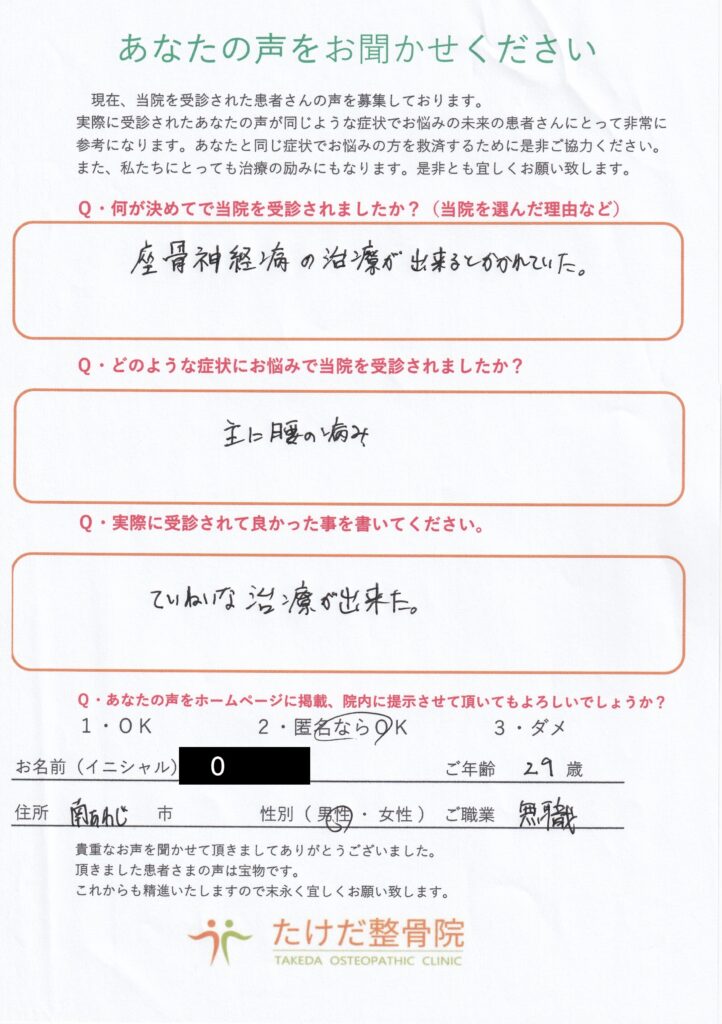 あなたの声をお聞かせください
現在、当院を受診された患者さんの声を募集しております。
実際に受診されたあなたの声が同じような症状でお悩みの未来の患者さんにとって非常に
参考になります。あなたと同じ症状でお悩みの方を救済するために是非ご協力ください。
また、私たちにとっても治療の励みにもなります。是非とも宜しくお願い致します。
Q・何が決めてで当院を受診されましたか？（当院を選んだ理由など）
座骨神経痛の治療が出来るとかかれていた。
Q・どのような症状にお悩みで当院を受診されましたか？
主に腰の痛み
Q・実際に受診されて良かった事を書いてください。
ていねいな治療が出来た。
Q・あなたの声をホームページに掲載、院内に提示させて頂いてもよろしいでしょうか？
1・OK 2・匿名ならOK 3・ダメ
お名前（イニシャル） O ご年齢 29 歳
住所 南あわじ 市 性別（男性・女性） ご職業 無職
貴重なお声を聞かせて頂きましてありがとうございました。
頂きました患者さまの声は宝物です。
これからも精進いたしますので末永く宜しくお願い致します。
たけだ整骨院
TAKEDA OSTEOPATHIC CLINIC